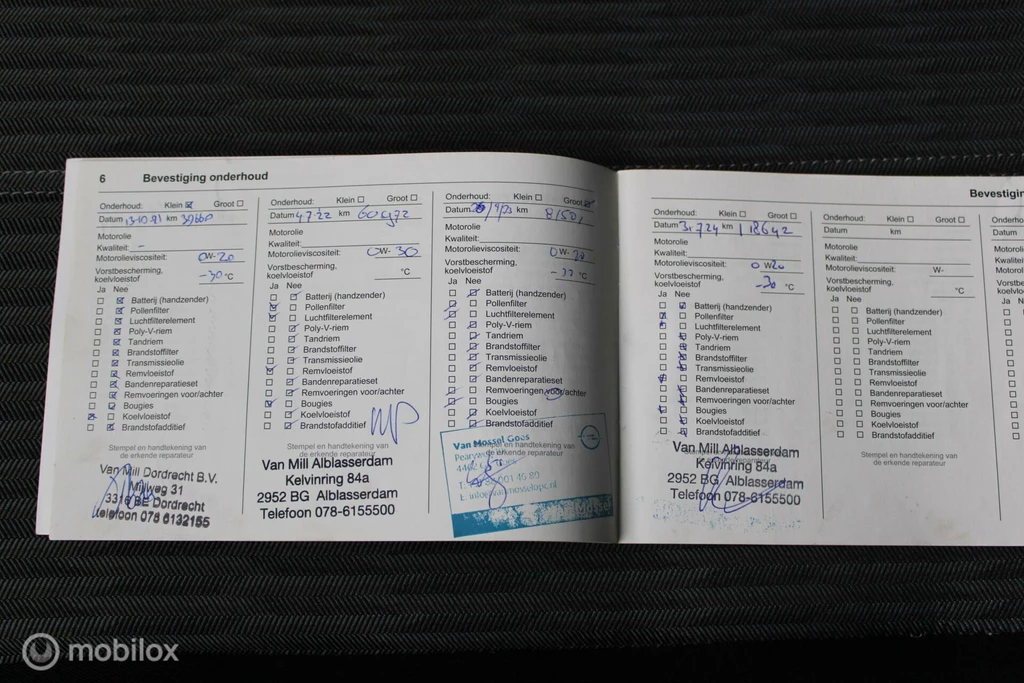 6 Bevestiging onderhoud
Onderhoud: Klein Groot
Datum 13-10-21 km
Motorolie
Kwaliteit: -
Motorolieviscositeit: 0W-20
Vorstbescherming,
koelvloeistof -30 °C
Ja Nee
Batterij (handzender)
Pollenfilter
Luchtfilterelement
Poly-V-riem
Tandriem
Brandstoffilter
Transmissieolie
Remvloeistof
Bandenreparatieset
Remvoeringen voor/achter
Bougies
Koelvloeistof
Brandstofadditief
Stempel en handtekening van
de erkende reparateur
Van Mill Dordrecht B.V.
Mijlweg 31
3316 BE Dordrecht
Telefoon 078 6132155
Onderhoud: Klein Groot
Datum 4722 km
Motorolie
Kwaliteit:
Motorolieviscositeit: 0W-30
Vorstbescherming,
koelvloeistof °C
Ja Nee
Batterij (handzender)
Pollenfilter
Luchtfilterelement
Poly-V-riem
Tandriem
Brandstoffilter
Transmissieolie
Remvloeistof
Bandenreparatieset
Remvoeringen voor/achter
Bougies
Koelvloeistof
Brandstofadditief
Stempel en handtekening van
de erkende reparateur
Van Mill Alblasserdam
Kelvinring 84a
2952 BG Alblasserdam
Telefoon 078-6155500
Onderhoud: Klein Groot
Datum km
Motorolie
Kwaliteit:
Motorolieviscositeit: 0W-
Vorstbescherming,
koelvloeistof °C
Ja Nee
Batterij (handzender)
Pollenfilter
Luchtfilterelement
Poly-V-riem
Tandriem
Brandstoffilter
Transmissieolie
Remvloeistof
Bandenreparatieset
Remvoeringen voor/achter
Bougies
Koelvloeistof
Brandstofadditief
Stempel en handtekening van
de erkende reparateur
Van Mossel Goes
Bevestigin
Onderhoud: Klein Groot
Datum km
Motorolie
Kwaliteit:
Motorolieviscositeit: 0W20
Vorstbescherming,
koelvloeistof -30 °C
Ja Nee
Batterij (handzender)
Pollenfilter
Luchtfilterelement
Poly-V-riem
Tandriem
Brandstoffilter
Transmissieolie
Remvloeistof
Bandenreparatieset
Remvoeringen voor/achter
Bougies
Koelvloeistof
Brandstofadditief
Van Mill Alblasserdam
Kelvinring 84a
2952 BG Alblasserdam
Telefoon 078-6155500
Onderhoud: Klein Groot
Datum km
Motorolie
Kwaliteit:
Motorolieviscositeit: W-
Vorstbescherming,
koelvloeistof °C
Ja Nee
Batterij (handzender)
Pollenfilter
Luchtfilterelement
Poly-V-riem
Tandriem
Brandstoffilter
Transmissieolie
Remvloeistof
Bandenreparatieset
Remvoeringen voor/achter
Bougies
Koelvloeistof
Brandstofadditief
Stempel en handtekening van
de erkende reparateur
mobilox